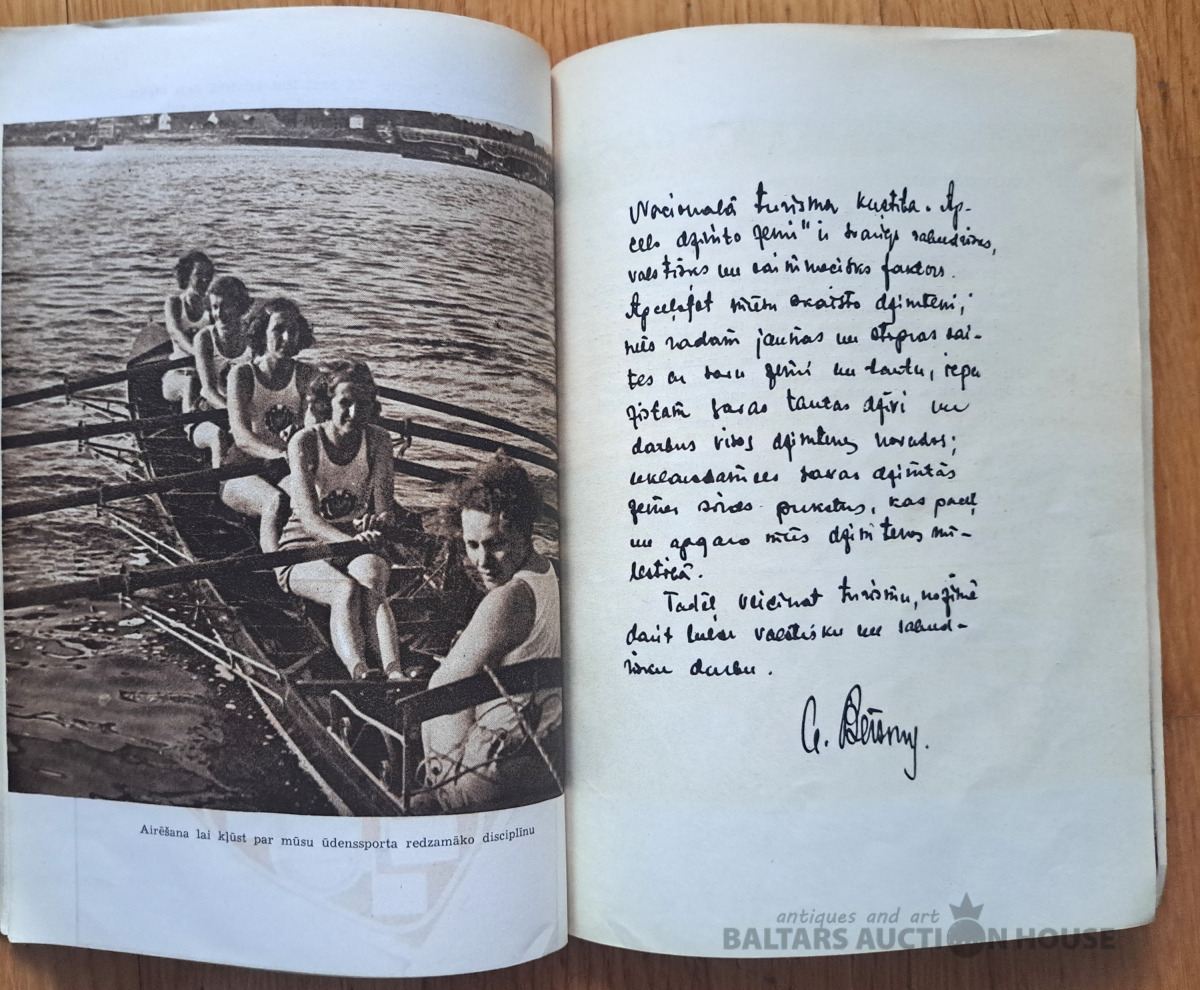 Airēšana lai kļūst par mūsu ūdenssporta redzamāko disciplīnu
Nacionalā tūrisma kustība „Ap-
ceļo dzimto zemi" ir svarīgs sabiedrisks,
valstisks un saimniecisks faktors.
Apceļojot mūsu skaisto dzimteni,
mēs radam jaunas un stipras sai-
tes ar savu zemi un tautu, iepa
zīstam savas tautas dzīvi un
darbus visos dzimtenes novados;
ieklausamies savas dzimtās
zemes sirds pukstos, kas paceļ
un apgaro mūs dzimtenes mī-
lestībā.
Tadēļ veicinat tūrismu, nozīmē
darit lielu valstisku un sabied-
risku darbu.
A. Bērziņš.
antiques and art
BALTARS AUCTION HOUSE